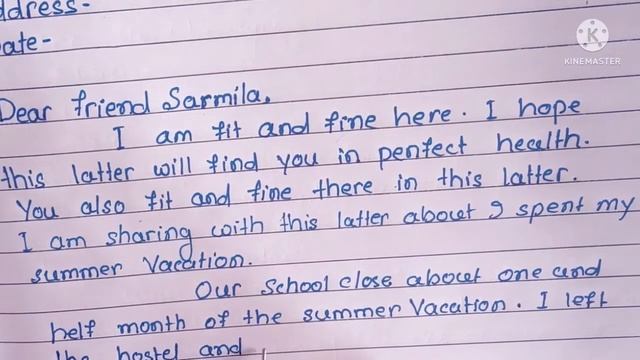 ddress-
ate-
KINEMASTER
Dear friend Sarmila,
I am fit and fine here. I hope
this latter will find you in penfect health.
You also fit and fine there in this latter.
I am sharing with this latter about I spent my
summer Vacation.
Our School close about one and
helf month of the summer Vacation. I left
the hostel and